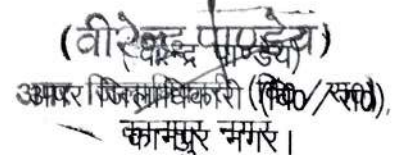 (वीरेन्द्र पाण्डेय)
अपर जिलाधिकारी (वि०/रा०),
कानपुर नगर।